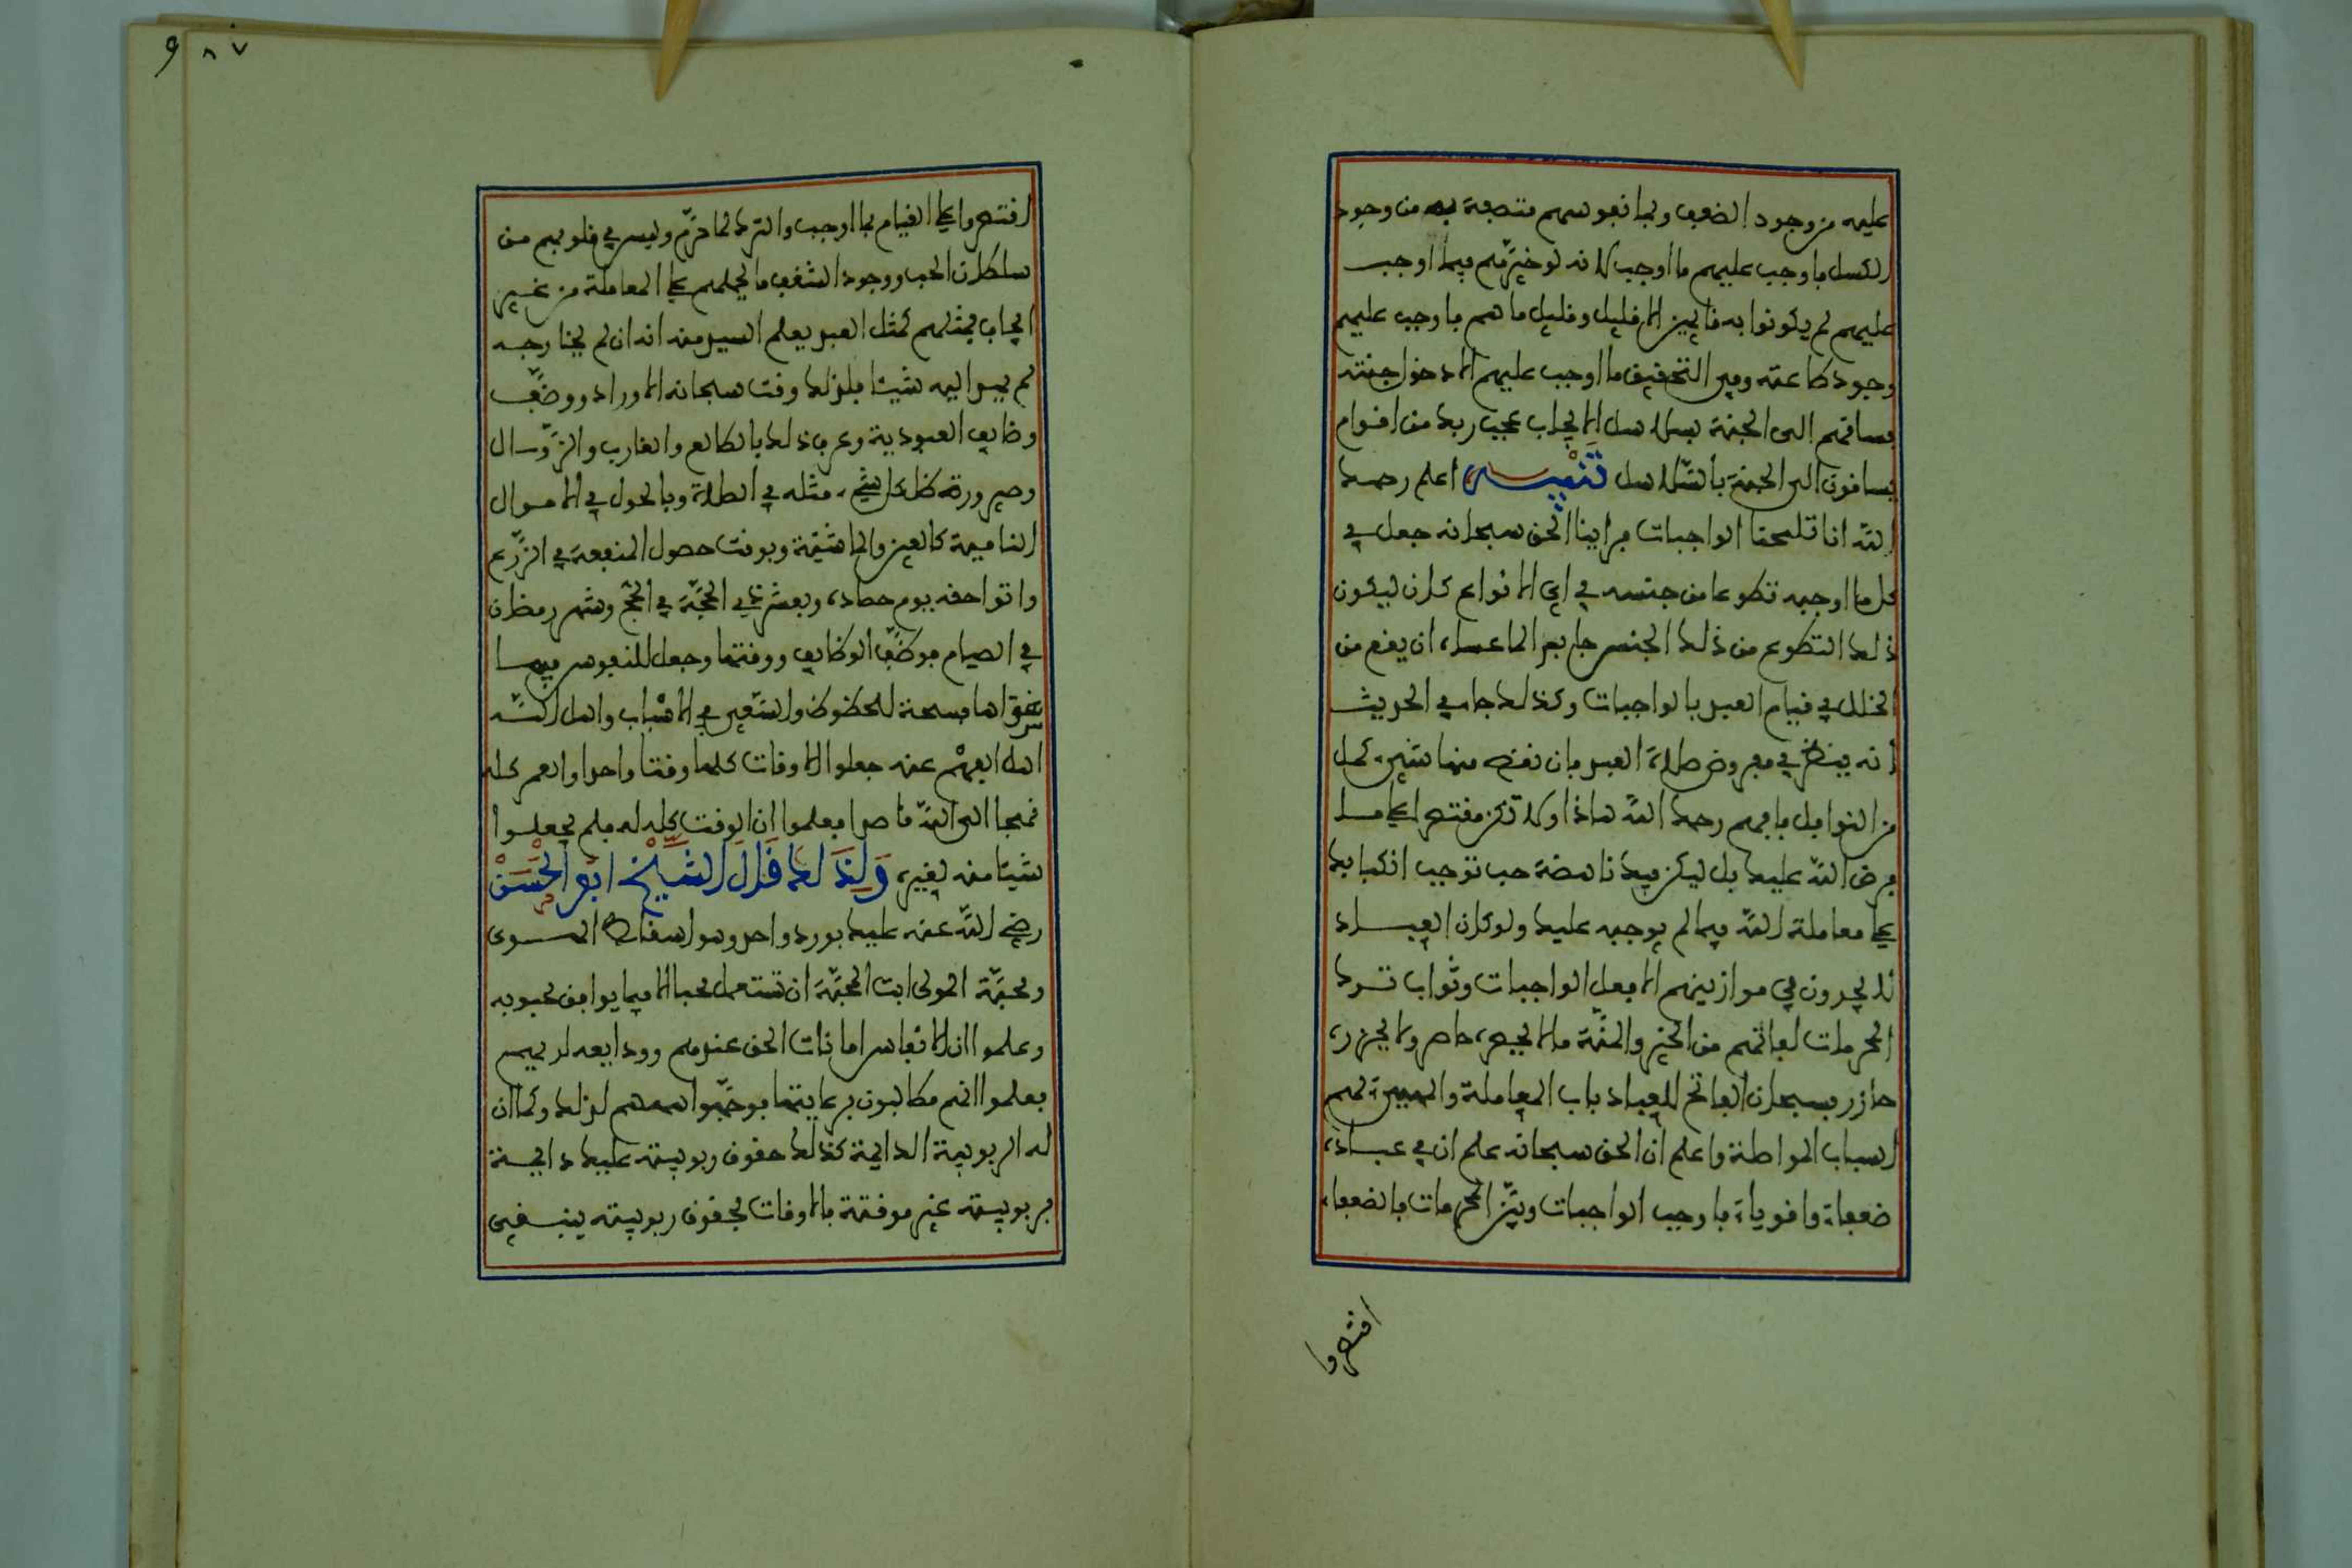 عليه من وجود الضعف ولما نفوسهم متصفة به من وجود
الكسل فاوجب عليهم ما اوجب لانه لو خيرهم فيما اوجب
عليهم لم يكونوا به قايمين الا قليل وقليل ما هم فاوجب عليهم
وجود طاعته وفي التحقيق ما اوجب عليهم الا دخول جنته
فساقهم الى الجنة بسلاسل الايجاب عجب ربك من اقوام
يساقون الى الجنة بالسلاسل تنبيه اعلم رحمك
الله انا تلمحنا الواجبات فراينا الحق سبحانه جعل في
كل ما اوجبه تطوعا من جنسه في اي الانواع كان ليكون
ذلك التطوع من ذلك الجنس جابرا لما عساه ان يقع من
الخلل في قيام العبد بالواجبات وكذلك جا في الحديث
انه ينظر في مفروض صلاة العبد فان نقص منها شيء كمل
من النوافل فافهم رحمك الله هاذا ولا تكن مقتصرا على ما
فرض الله عليك بل ليكن فيك ناهضة حب توجب انكبابك
على معاملة الله فيما لم يوجبه عليك ولو كان العباد
لا يجدون في موازينهم الا فعل الواجبات وثواب ترك
المحرمات لفاتهم من الخير والمنة ما لا يحصره حاصر ولا يحزره
حازر فسبحان الفاتح للعباد باب المعاملة والمبين لهم
اسباب المواصلة واعلم ان الحق سبحانه علم ان في عباده
ضعفاء واقوياء فاوجب الواجبات وبين المحرمات فالضعفاء
اقتصروا
اقتصروا على القيام بما اوجب والترك لما حرم وليس في قلوبهم من
سلطان الحب ووجود الشغف ما يحملهم على المعاملة من غير
ايجاب فمثلهم كمثل العبد يعلم السيد منه انه ان لم يخارجه
لم يهد اليه شيئا فلذلك وقت سبحانه الاوراد ووظف
وظايف العبودية وعرف ذلك بالطالع والغارب والزوال
وصيرورة ظل كل شيء مثله في الصلاة وبالحول في الاموال
النامية كالعين والماشية وبوقت حصول المنفعة في الزرع
واتوا حقه يوم حصاده وبعشر ذي الحجة في الحج وشهر رمضان
في الصيام فوظف الوظايف ووقتها وجعل للنفوس فيما
سواها فسحة للحظوظ والسعي في الاسباب واهل الله
اهل الفهم عنه جعلوا الاوقات كلها وقتا واحدا والعمر كله
نهجا الى الله قاصدا فعلموا ان الوقت كله له فلم يجعلوا
شيئا منه لغيره ولذلك قال الشيخ ابو الحسن
رضي الله عنه عليك بورد واحد وهو اسقاط الهوى
ومحبة المولى ابت المحبة ان تستعمل محبا الا فيما يوافق محبوبه
وعلموا ان الانفاس امانات الحق عندهم وودايعه لديهم
فعلموا انهم مطالبون برعايتها فوجهوا هممهم لذلك وكما ان
له الربوبية الدايمة كذلك حقوق ربوبيته عليك دايمة
فربوبيته غير موقتة بالاوقات فحقوق ربوبيته ينبغي